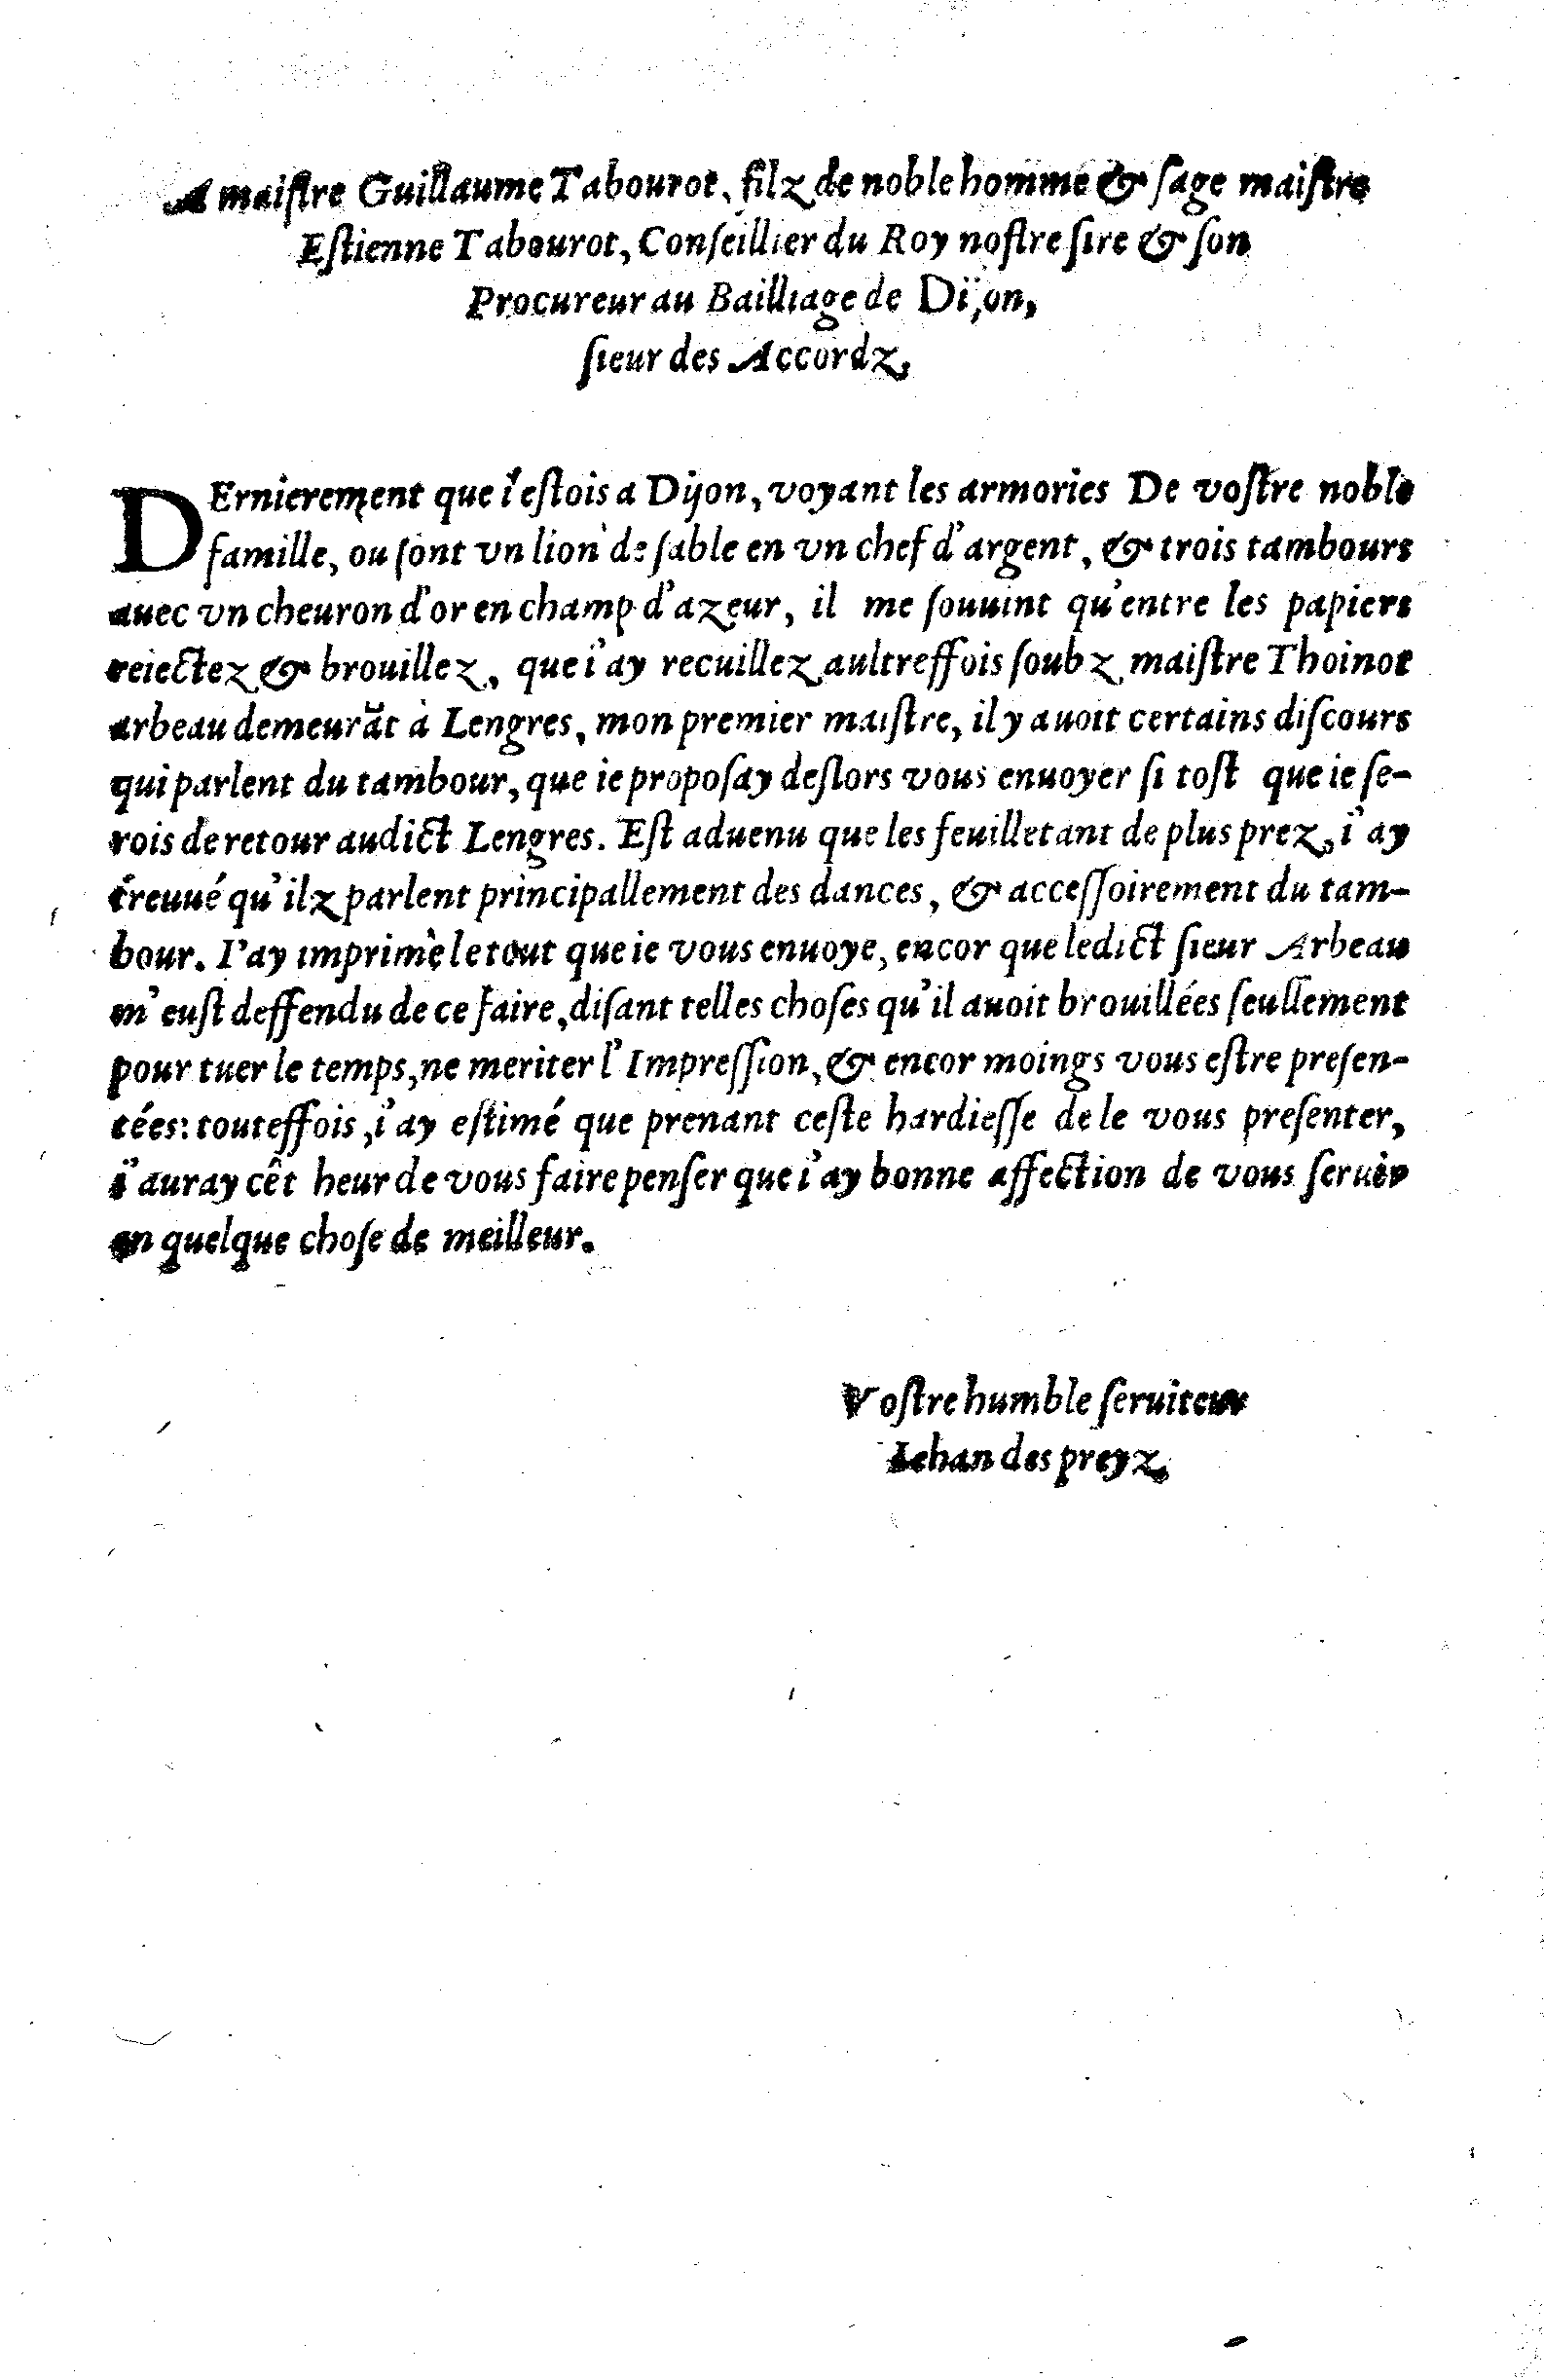 A maiſtre Guillaume Tabourot, filz de noble homme & ſage maiſtre
Eſtienne Tabourot, Conſeillier du Roy noſtre ſire & ſon
Procureur au Bailliage de Dijon,
ſieur des Accordz,
DErnierement que i'eſtois a Dijon, voyant les armories De voſtre noble
famille, ou ſont vn lion de ſable en vn chef d'argent, & trois tambours
auec vn cheuron d'or en champ d'azeur, il me ſouuint qu'entre les papiers
reiectez & brouillez, que i'ay recuillez aultreffois ſoubz maiſtre Thoinot
arbeau demeurãt à Lengres, mon premier maiſtre, il y auoit certains diſcours
qui parlent du tambour, que ie propoſay deſlors vous enuoyer ſi toſt que ie ſe-
rois de retour audict Lengres. Eſt aduenu que les feuilletant de plus prez, i'ay
treuué qu'ilz parlent principallement des dances, & acceſſoirement du tam-
bour. I'ay imprimè le tout que ie vous enuoye, encor que ledict ſieur Arbeau
m'euſt deffendu de ce faire, diſant telles choſes qu'il auoit brouillées ſeullement
pour tuer le temps, ne meriter l'Impreſſion, & encor moings vous eſtre preſen-
tées: touteffois, i'ay eſtimé que prenant ceſte hardieſſe de le vous preſenter,
i'auray cêt heur de vous faire penſer que i'ay bonne affection de vous ſeruir
en quelque choſe de meilleur.
Voſtre humble ſeruiteur
Iehan des preyz.